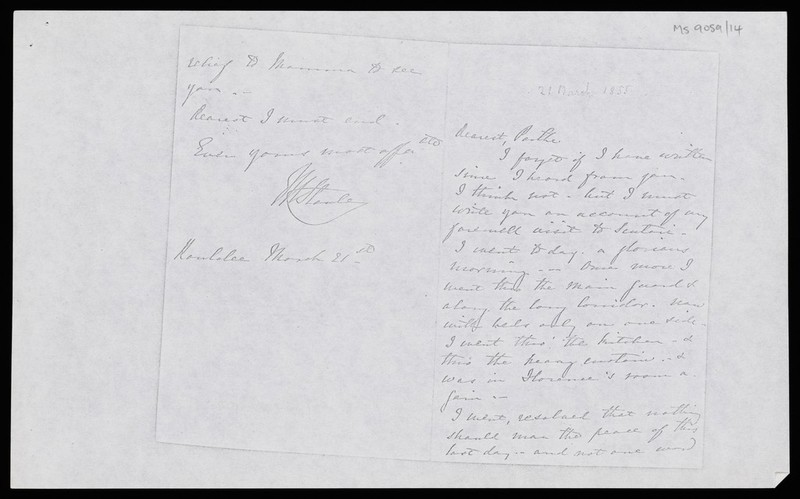 MS 9059/14
relief to Mamma to see
you. —
Dearest I must end.
Ever yours most affec
MStanley
Koulalee March 21st
21 March 1855
Dearest, Parthe
I forget if I have written
since I heard from you.
I think not. but I must
write you an account of my
farewell visit to Scutari.
I went to day. a glorious
morning. — Once more I
went thro the main guard &
along the long corridor. now
with beds only on one side.
I went thro' the kitchen - &
thro the heavy curtain. &
was in Florence's room a-
gain. —
I went, resolved that nothing
should mar the peace of this
last day - and not one word